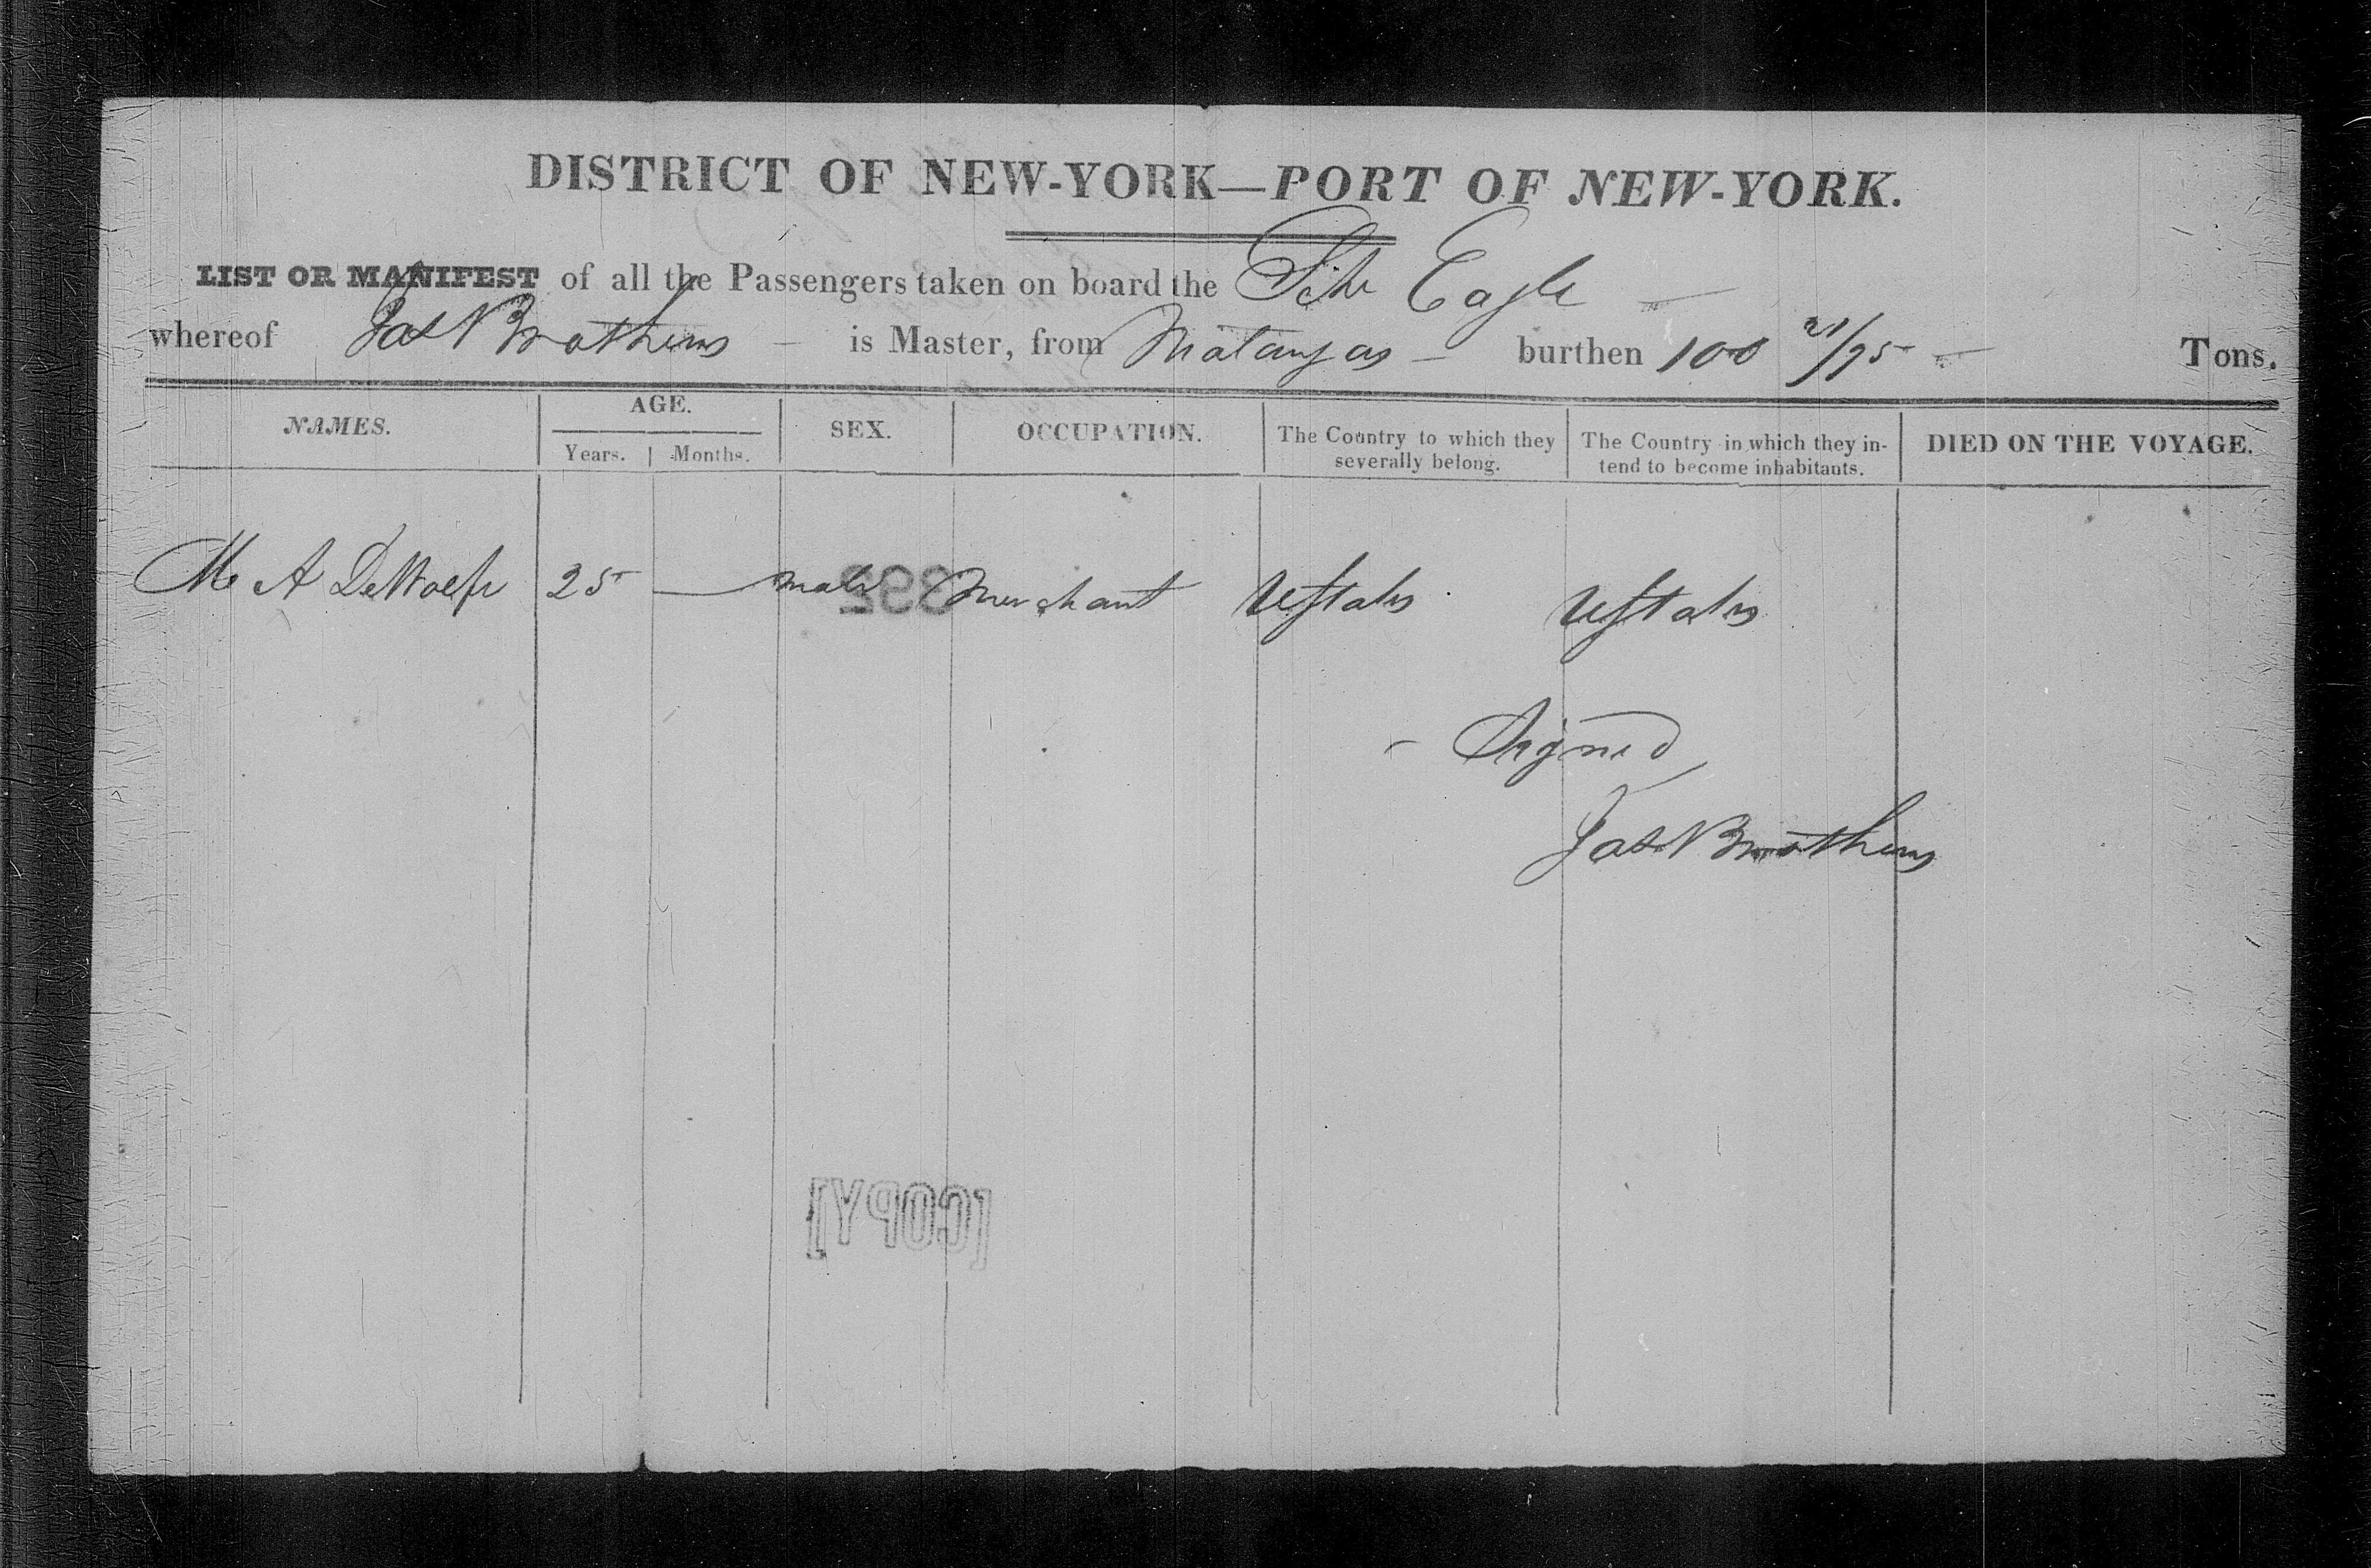 DISTRICT OF NEW-YORK—PORT OF NEW-YORK.
LIST OR MANIFEST of all the Passengers taken on board the Schr Eagle
whereof Jas N Brothers is Master, from Matanzas burthen 100 21/95 Tons.
NAMES. AGE. SEX. OCCUPATION. The Country to which they severally belong. The Country in which they intend to become inhabitants. DIED ON THE VOYAGE.
Years. Months.
Mr A DeWolfe 25 — male Merchant UStates UStates
392
Signed
Jas N Brothers
[COPY]